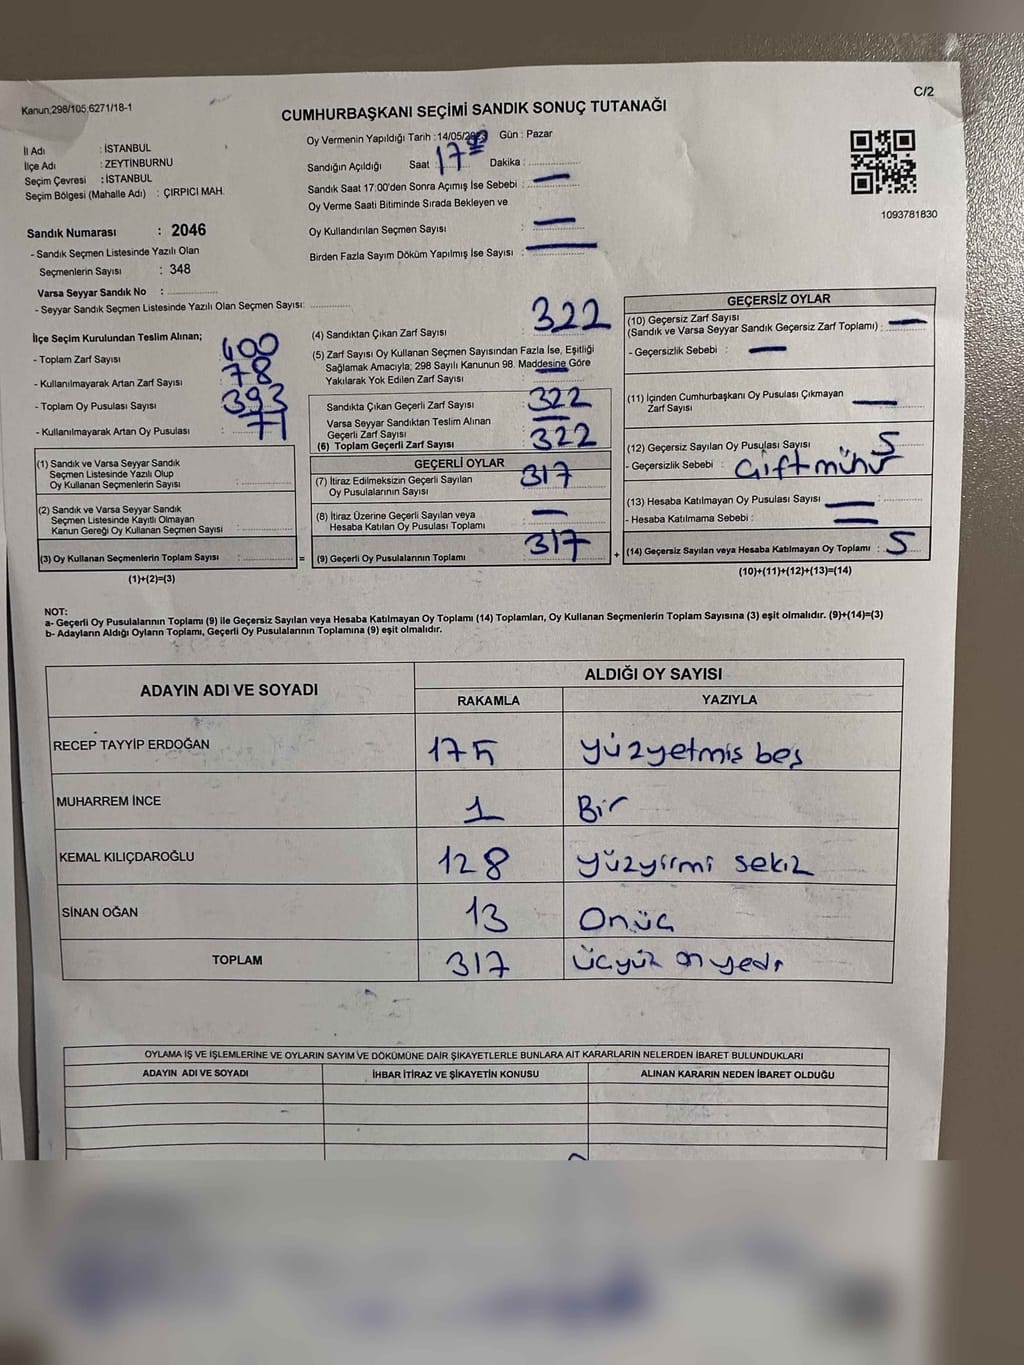 Kanun:298/105,6271/18-1
C/2
CUMHURBAŞKANI SEÇİMİ SANDIK SONUÇ TUTANAĞI
İl Adı : İSTANBUL
İlçe Adı : ZEYTİNBURNU
Seçim Çevresi : İSTANBUL
Seçim Bölgesi (Mahalle Adı) : ÇIRPICI MAH.
Oy Vermenin Yapıldığı Tarih : 14/05/ Gün : Pazar
Sandığın Açıldığı Saat : 17 00 Dakika :
Sandık Saat 17:00'den Sonra Açımış İse Sebebi : —
Oy Verme Saati Bitiminde Sırada Bekleyen ve
Oy Kullandırılan Seçmen Sayısı : —
Birden Fazla Sayım Döküm Yapılmış İse Sayısı : —
1093781830
Sandık Numarası : 2046
- Sandık Seçmen Listesinde Yazılı Olan
Seçmenlerin Sayısı : 348
Varsa Seyyar Sandık No :
- Seyyar Sandık Seçmen Listesinde Yazılı Olan Seçmen Sayısı:
İlçe Seçim Kurulundan Teslim Alınan;
- Toplam Zarf Sayısı : 400
- Kullanılmayarak Artan Zarf Sayısı : 78
- Toplam Oy Pusulası Sayısı : 393
- Kullanılmayarak Artan Oy Pusulası : 71
(1) Sandık ve Varsa Seyyar Sandık
Seçmen Listesinde Yazılı Olup
Oy Kullanan Seçmenlerin Sayısı :
(2) Sandık ve Varsa Seyyar Sandık
Seçmen Listesinde Kayıtlı Olmayan
Kanun Gereği Oy Kullanan Seçmen Sayısı :
(3) Oy Kullanan Seçmenlerin Toplam Sayısı : =
(1)+(2)=(3)
(4) Sandıktan Çıkan Zarf Sayısı : 322
(5) Zarf Sayısı Oy Kullanan Seçmen Sayısından Fazla İse, Eşitliği
Sağlamak Amacıyla; 298 Sayılı Kanunun 98. Maddesine Göre
Yakılarak Yok Edilen Zarf Sayısı : —
Sandıkta Çıkan Geçerli Zarf Sayısı : 322
Varsa Seyyar Sandıktan Teslim Alınan
Geçerli Zarf Sayısı : —
(6) Toplam Geçerli Zarf Sayısı : 322
GEÇERLİ OYLAR
(7) İtiraz Edilmeksizin Geçerli Sayılan
Oy Pusulalarının Sayısı : 317
(8) İtiraz Üzerine Geçerli Sayılan veya
Hesaba Katılan Oy Pusulası Toplamı : —
(9) Geçerli Oy Pusulalarının Toplamı : 317 +
GEÇERSİZ OYLAR
(10) Geçersiz Zarf Sayısı
(Sandık ve Varsa Seyyar Sandık Geçersiz Zarf Toplamı) : —
- Geçersizlik Sebebi : —
(11) İçinden Cumhurbaşkanı Oy Pusulası Çıkmayan
Zarf Sayısı : —
(12) Geçersiz Sayılan Oy Pusulası Sayısı : 5
- Geçersizlik Sebebi : Çiftmühür
(13) Hesaba Katılmayan Oy Pusulası Sayısı : —
- Hesaba Katılmama Sebebi : —
(14) Geçersiz Sayılan veya Hesaba Katılmayan Oy Toplamı : 5
(10)+(11)+(12)+(13)=(14)
NOT:
a- Geçerli Oy Pusulalarının Toplamı (9) ile Geçersiz Sayılan veya Hesaba Katılmayan Oy Toplamı (14) Toplamları, Oy Kullanan Seçmenlerin Toplam Sayısına (3) eşit olmalıdır. (9)+(14)=(3)
b- Adayların Aldığı Oyların Toplamı, Geçerli Oy Pusulalarının Toplamına (9) eşit olmalıdır.
ADAYIN ADI VE SOYADI
ALDIĞI OY SAYISI
RAKAMLA YAZIYLA
RECEP TAYYİP ERDOĞAN 175 yüzyetmiş beş
MUHARREM İNCE 1 Bir
KEMAL KILIÇDAROĞLU 128 yüzyirmi sekiz
SİNAN OĞAN 13 Onüç
TOPLAM 317 üçyüz onyedi
OYLAMA İŞ VE İŞLEMLERİNE VE OYLARIN SAYIM VE DÖKÜMÜNE DAİR ŞİKAYETLERLE BUNLARA AİT KARARLARIN NELERDEN İBARET BULUNDUKLARI
ADAYIN ADI VE SOYADI İHBAR İTİRAZ VE ŞİKAYETİN KONUSU ALINAN KARARIN NEDEN İBARET OLDUĞU